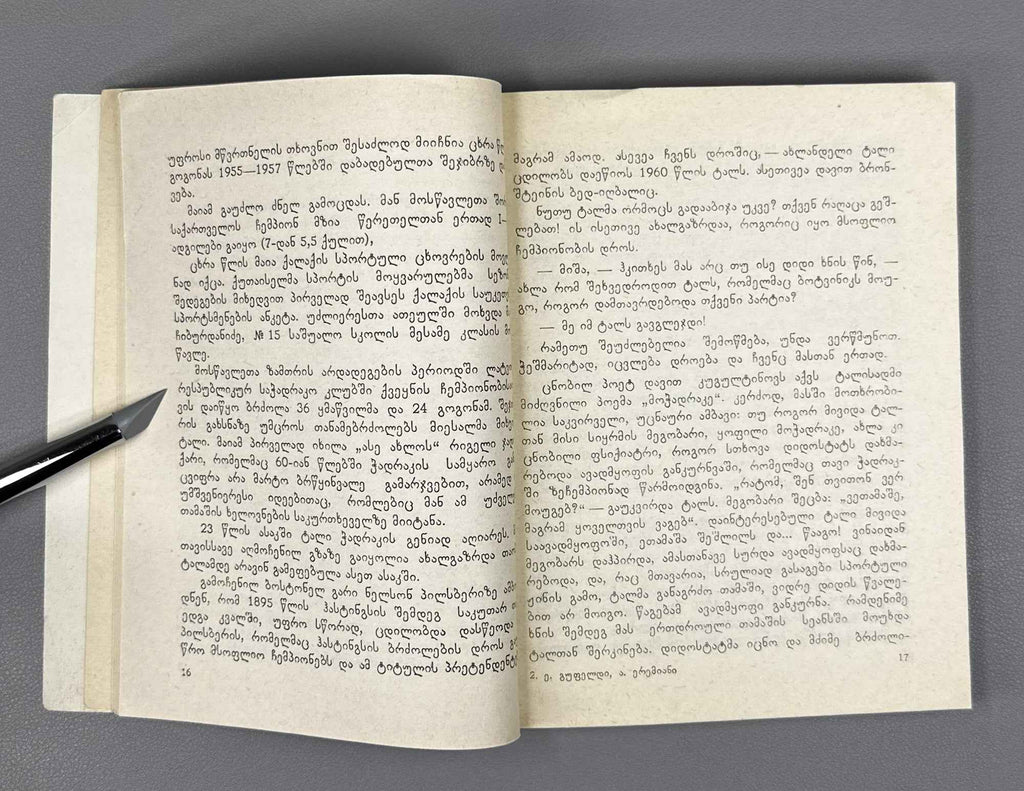 უფროსი მწვრთნელის თხოვნით შესაძლოდ მიიჩნია ცხრა
გოგონას 1955—1957 წლებში დაბადებულთა შეჯიბრზე
ვება.
მაიამ გაუძლო ძნელ გამოცდას. მან მოსწავლეთა
საქართველოს ჩემპიონ მზია წერეთელთან ერთად I—
ადგილები გაიყო (7-დან 5,5 ქულით),
ცხრა წლის მაია ქალაქის სპორტული ცხოვრების
ნად იქცა. ქუთაისელმა სპორტის მოყვარულებმა
შედეგების მიხედვით პირველად შეავსეს ქალაქის
სპორტსმენების ანკეტა. უძლიერესთა ათეულში მოხვდა
ჩიბურდანიძე, № 15 საშუალო სკოლის მესამე კლასის
წავლე.
მოსწავლეთა ზამთრის არდადეგების პერიოდში
რესპუბლიკურ საჭადრაკო კლუბში ქვეყნის
ვის დაიწყო ბრძოლა 36 ყმაწვილმა და 24 გოგონამ.
რის გახსნაზე უმცროს თანამებრძოლებს მიესალმა
ტალი. მაიამ პირველად იხილა „ასე ახლოს“ რიგელი
ქარი, რომელმაც 60-იან წლებში ჭადრაკის სამყარო
ცვიფრა არა მარტო ბრწყინვალე გამარჯვებით, არამედ
უმშვენიერესი იდეებითაც, რომლებიც მან ამ
თამაშის ხელოვნების საკურთხეველზე მიიტანა.
23 წლის ასაკში ტალი ჭადრაკის გენიად აღიარეს.
თავისსავე აღმოჩენილ გზაზე გაიყოლია ახალგაზრდა
ტალამდე არავინ გამეფებულა ასეთ ასაკში.
გამოჩენილ ბოსტონელ გარი ნელსონ პილსბერიზე
დნენ, რომ 1895 წლის ჰასტინგსის შემდეგ საკუთარ
ედგა კვალში, უფრო სწორად, ცდილობდა დასწეოდა
პილსბერის, რომელმაც ჰასტინგსის ბრძოლების დროს
წრო მსოფლიო ჩემპიონებს და ამ ტიტულის
16
მაგრამ ამაოდ. ასევეა ჩვენს დროშიც, — ახლანდელი ტალი
ცდილობს დაეწიოს 1960 წლის ტალს. ასეთივეა დავით ბრონ-
შტეინის ბედ-იღბალიც.
ნუთუ ტალმა ორმოცს გადააბიჯა უკვე? თქვენ რაღაცა გეშ-
ლებათ! ის ისეთივე ახალგაზრდაა, როგორიც იყო მსოფლიო
ჩემპიონობის დროს.
— მიშა, — ჰკითხეს მას არც თუ ისე დიდი ხნის წინ, —
ახლა რომ შეხვედროდით ტალს, რომელმაც ბოტვინიკს მოუ-
გო, როგორ დამთავრდებოდა თქვენი პარტია?
— მე იმ ტალს გავგლეჯდი!
რამეთუ შეუძლებელია შემოწმება, უნდა ვერწმუნოთ.
ჭეშმარიტად, იცვლება დროება და ჩვენც მასთან ერთად.
ცნობილ პოეტ დავით კუგულტინოვს აქვს ტალისადმი
მიძღვნილი პოემა „მოჭადრაკე“. კერძოდ, მასში მოთხრობი-
ლია საკვირველი, უცნაური ამბავი: თუ როგორ მივიდა ტალ-
თან მისი სიყრმის მეგობარი, ყოფილი მოჭადრაკე, ახლა კი
ცნობილი ფსიქიატრი, როგორ სთხოვა დიდოსტატს დახმა-
რებოდა ავადმყოფის განკურნვაში, რომელმაც თავი ჭადრაკ-
ში ზეჩემპიონად წარმოიდგინა. „რატომ, შენ თვითონ ვერ
მოუგებ?“ — გაუკვირდა ტალს. მეგობარი შეცბა: „ვეთამაშე,
მაგრამ ყოველთვის ვაგებ“. დაინტერესებული ტალი მივიდა
საავადმყოფოში, ეთამაშა შეშლილს და... წააგო! ვინაიდან
მეგობარს დაჰპირდა, ამასთანავე სურდა ავადმყოფსაც დახმა-
რებოდა, და, რაც მთავარია, სრულიად გასაგები სპორტული
ჟინის გამო, ტალმა განაგრძო თამაში, ვიდრე დიდის წვალე-
ბით არ მოიგო. წაგებამ ავადმყოფი განკურნა. რამდენიმე
ხნის შემდეგ მას ერთდროული თამაშის სეანსში მოუხდა
ტალთან შერკინება. დიდოსტატმა იცნო და მძიმე ბრძოლი-
17
2. ე. გუფელდი, ა. ერემიანი